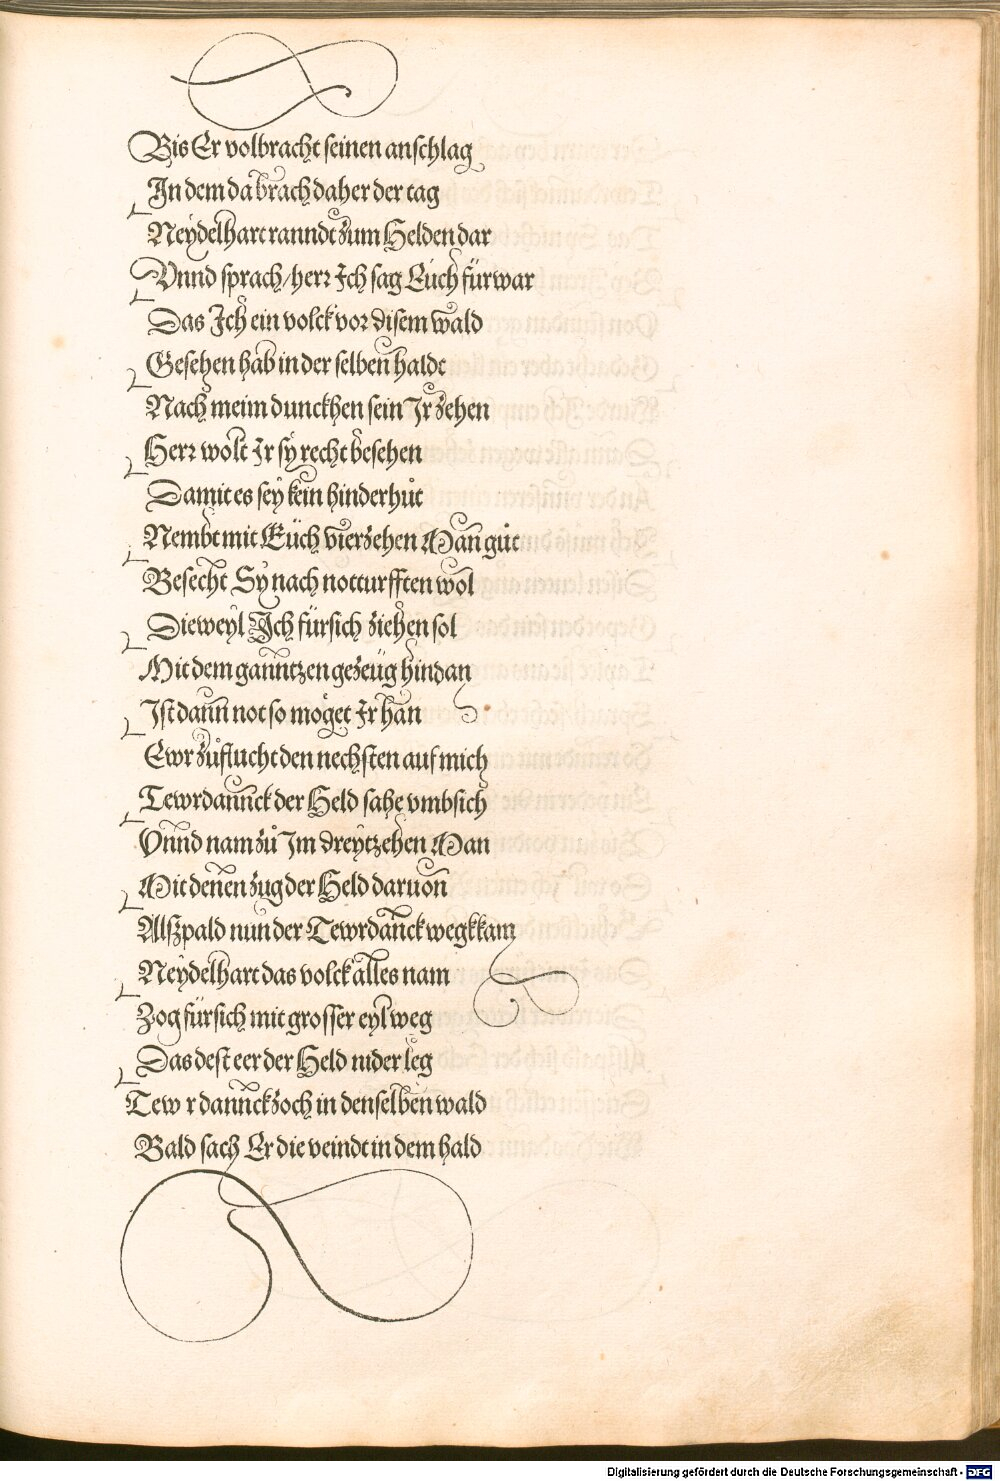 Bis Er volbracht seinen anschlag
In dem da brach daher der tag
Neÿdelhart ranndt zum Helden dar
Vnnd sprach / herr Ich sag Eüch fürwar
Das Ich ein volck vor disem wald
Gesehen hab in der selben haldt
Nach meim dunckhen sein Ir zehen
Herr wolt Ir sÿ recht besehen
Damit es seÿ kein hinderhůt
Nembt mit Eüch vierzehen Man gůt
Besecht Sÿ nach notturfften wol
Dieweÿl Ich fürsich ziehen sol
Mit dem ganntzen gezeüg hindan
Ist dann not so möget Ir han
Ewr zůflucht den nechsten auf mich
Tewrdannck der Held sahe vmbsich
Vnnd nam zů Im dreÿtzehen Man
Mit denen zug der Held daruon
Alßpald nun der Tewrdanck wegkkam
Neÿdelhart das volck alles nam
Zog fürsich mit grosser eÿl weg
Das dest eer der Held nider leg
Tewrdannck zoch in denselben wald
Bald sach Er die veindt in dem hald
Digitalisierung gefördert durch die Deutsche Forschungsgemeinschaft - DFG